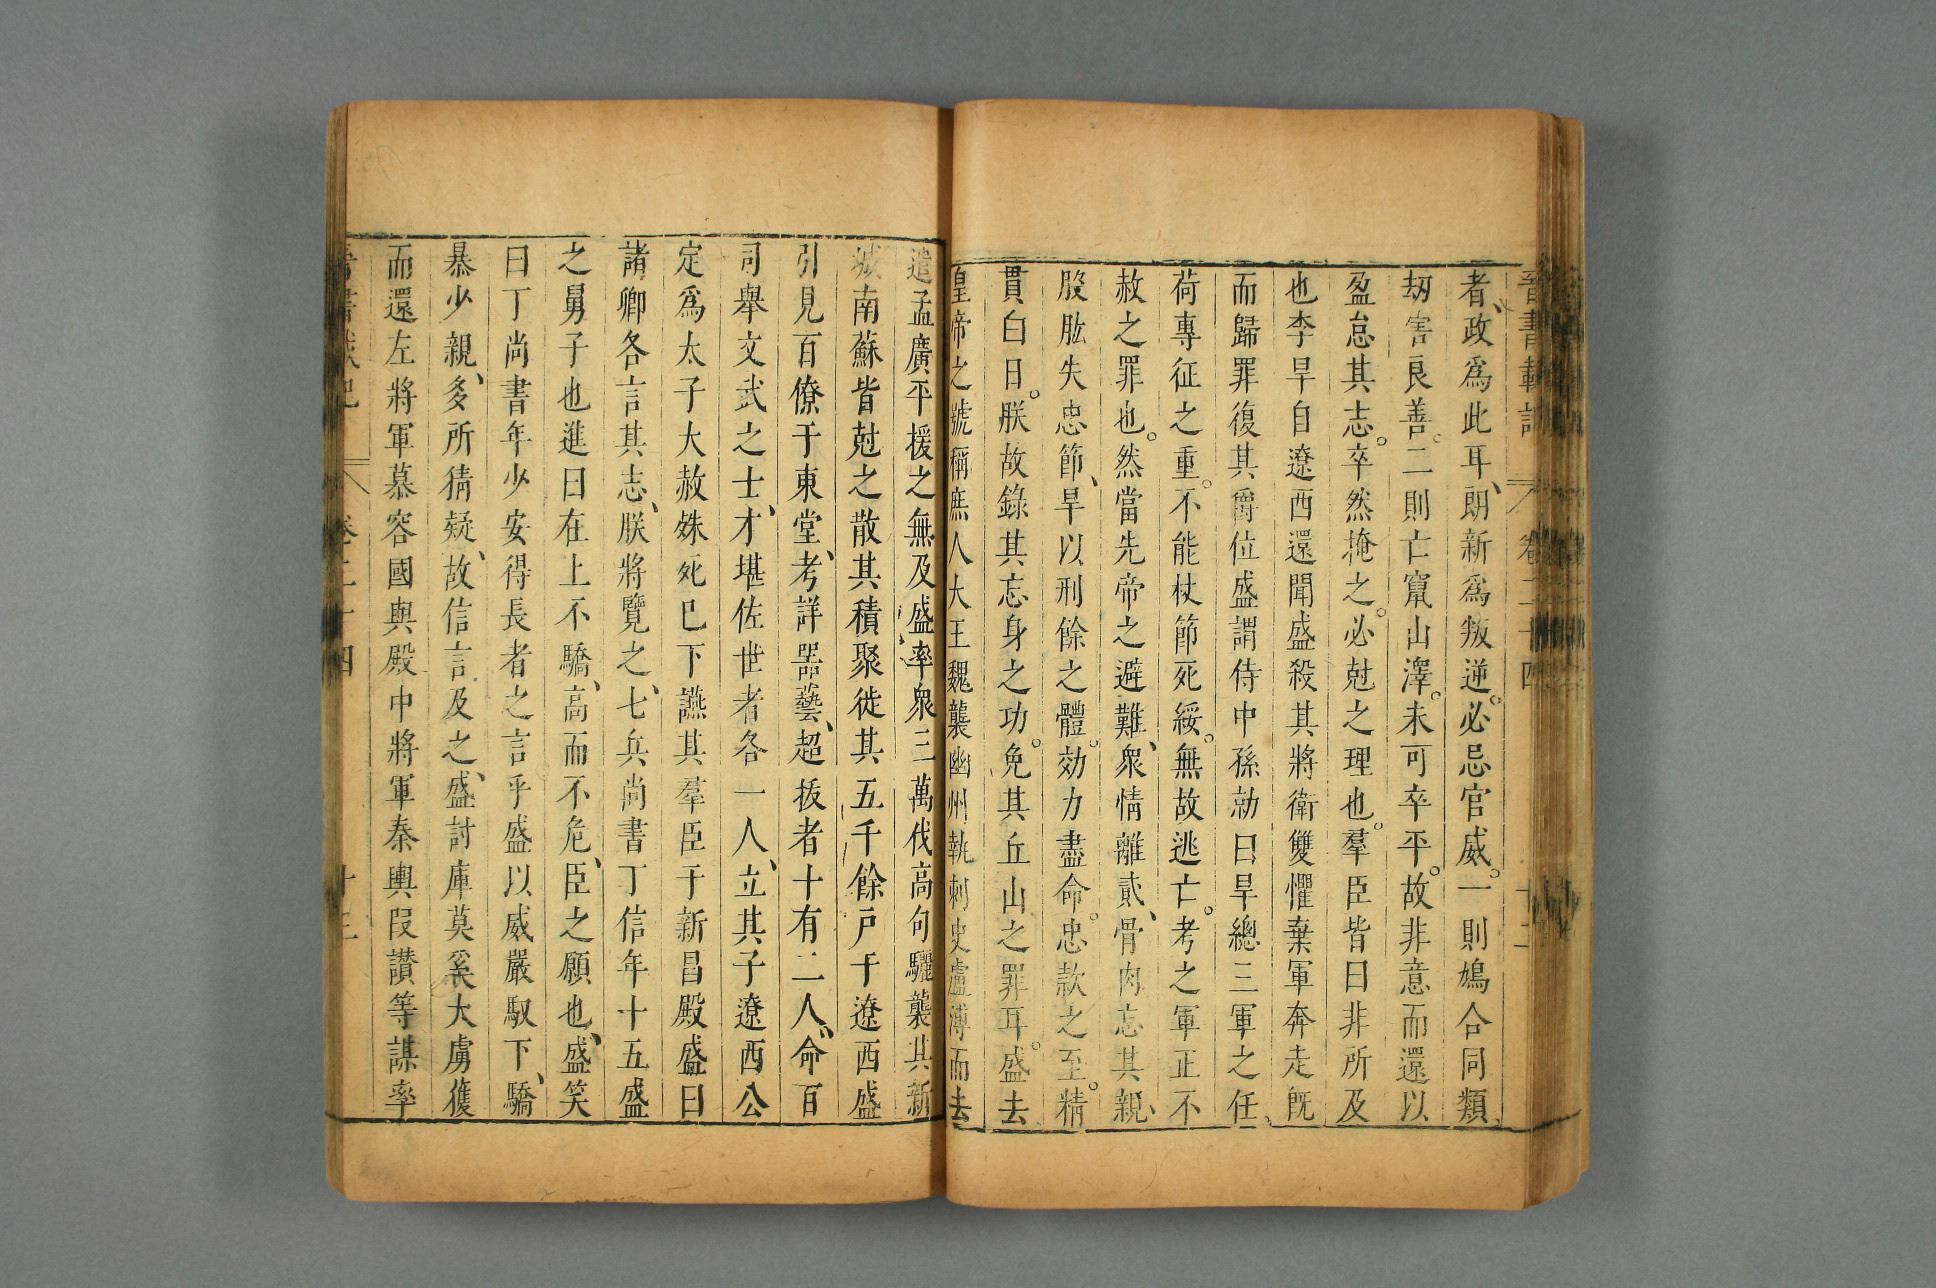 晉書載記 卷二十四 十二
者、政爲此耳、朗新爲叛逆。必忌官威。一則鳩合同類
刼害良善。二則亡竄山澤。未可卒平。故非意而還以
盈怠其志。卒然掩之。必尅之理也。羣臣皆曰非所及
也李旱自遼西還聞盛殺其將衛雙懼棄軍奔走旣
而歸罪復其爵位盛謂侍中孫勍曰旱總三軍之任、
荷專征之重。不能杖節死綏。無故逃亡。考之軍正不
赦之罪也。然當先帝之避難、衆情離貳、骨肉忘其親、
股肱失忠節、旱以刑餘之體。効力盡命。忠款之至。精
貫白日。朕故錄其忘身之功。免其丘山之罪耳。盛去
皇帝之號稱庶人大王魏襲幽州執刺史盧溥而去
遣孟廣平援之無及盛、率衆三萬伐高句驪襲其新
城南蘇皆尅之散其積聚徙其五千餘戶于遼西盛
引見百僚于東堂、考詳器藝、超拔者十有二人、命百
司舉文武之士、才堪佐世者各一人、立其子遼西公
定爲太子大赦殊死已下讌其羣臣于新昌殿盛曰
諸卿各言其志、朕將覽之、七兵尚書丁信年十五盛
之舅子也進曰在上不驕、高而不危、臣之願也、盛笑
曰丁尚書年少安得長者之言乎盛以威嚴馭下、驕
暴少親、多所猜疑、故信言及之、盛討庫莫奚大虜獲
而還左將軍慕容國與殿中將軍秦輿段讃等謀率
晉書載記 卷二十四 十三